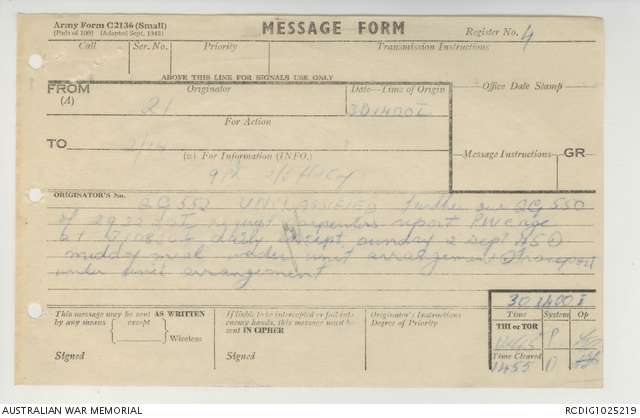 Army Form C2136 (Small)
(Pads of 100) (Adapted Sept. 1942)
MESSAGE FORM
Register No. 4
Call Ser. No. Priority Transmission Instructions
ABOVE THIS LINE FOR SIGNALS USE ONLY
FROM
(A)
Originator
Date—Time of Origin
Office Date Stamp
21
301400I
For Action
TO
2/14
(w) For Information (INFO.)
Message Instructions GR
ORIGINATOR'S No.
QG 552 UNCLASSIFIED further our QG 550
of 29 carpenters report PW cage
daily except sunday 2 sept 45
midday meal under unit arrangement transport
under unit arrangement
301400I
This message may be sent AS WRITTEN
by any means except
Wireless
Signed
If liable to be intercepted or fall into
enemy hands, this message must be
sent IN CIPHER
Signed
Originator's Instructions
Degree of Priority
Time System Op
THI or TOR
1445 P
Time Cleared
1455
AUSTRALIAN WAR MEMORIAL
RCDIG1025219